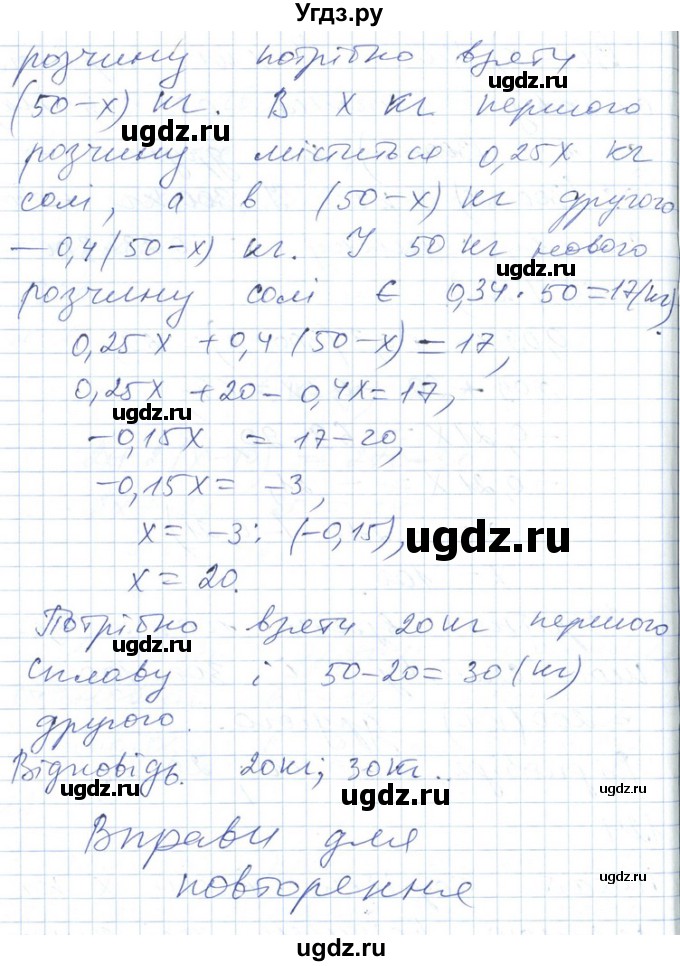 Угдз.ру
розчину потрібно взяти
(50-x) кг. В x кг першого
ugdz.ru
ugdz.ru
розчину міститься 0,25x кг
солі, а в (50-x) кг другого
ugdz.ru
ugdz.ru
— 0,4(50-x) кг. У 50 кг нового
ugdz.ru
розчину солі є 0,34 · 50 = 17(кг)
0,25x + 0,4(50-x) = 17,
0,25x + 20 - 0,4x = 17,
ugdz.ru
-0,15x = 17-20,
-0,15x = -3,
x = -3 : (-0,15),
ugdz.ru
x = 20.
Потрібно взяти 20кг першого
ugdz.ru
ugdz.ru
сплаву і 50-20 = 30 (кг)
другого.
Відповідь. 20кг; 30кг.
ugdz.ru
ugdz.ru
ugdz.ru
Вправи для
повторення
ugdz.ru
ugdz.ru